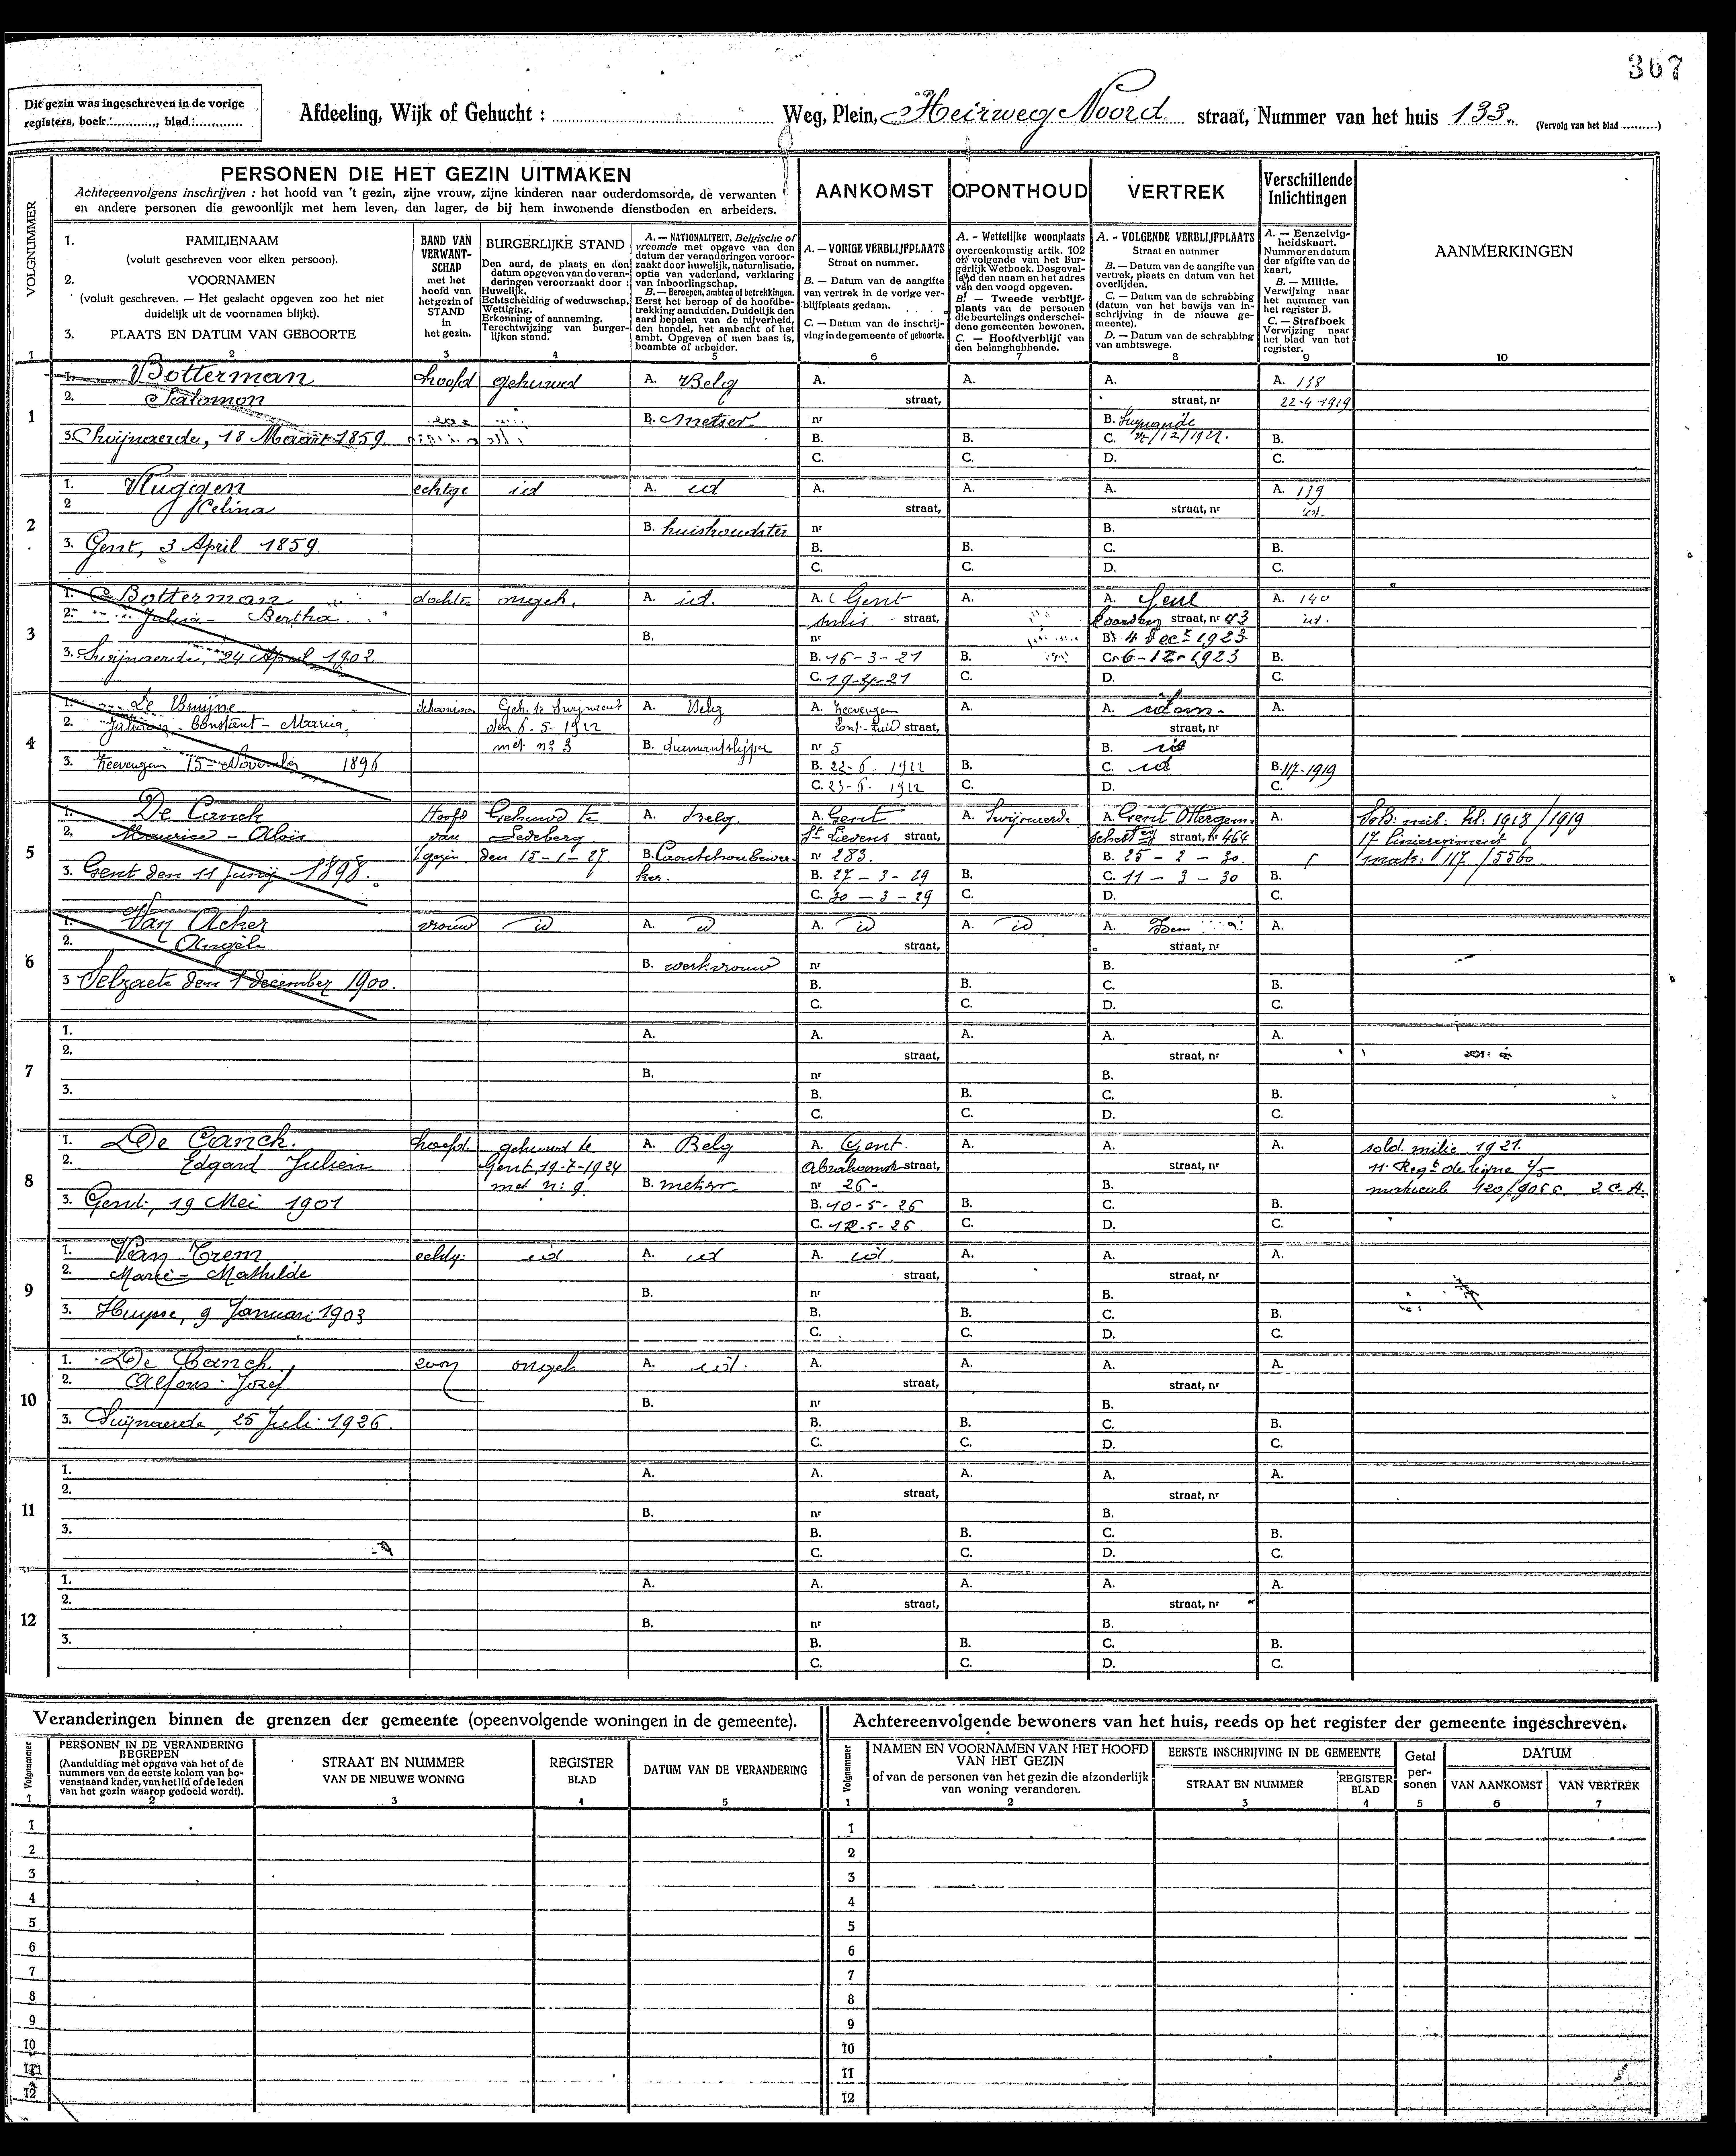 367
Dit gezin was ingeschreven in de vorige
registers, boek:........., blad:.........
Afdeeling, Wijk of Gehucht : .................... Weg, Plein, Heirweg Noord straat, Nummer van het huis 133. (Vervolg van het blad .........)
VOLGNUMMER
PERSONEN DIE HET GEZIN UITMAKEN
Achtereenvolgens inschrijven : het hoofd van 't gezin, zijne vrouw, zijne kinderen naar ouderdomsorde, de verwanten
en andere personen die gewoonlijk met hem leven, dan lager, de bij hem inwonende dienstboden en arbeiders.
AANKOMST OPONTHOUD VERTREK Verschillende Inlichtingen
1. FAMILIENAAM
(voluit geschreven voor elken persoon).
2. VOORNAMEN
(voluit geschreven. — Het geslacht opgeven zoo het niet
duidelijk uit de voornamen blijkt).
3. PLAATS EN DATUM VAN GEBOORTE
BAND VAN
VERWANT-
SCHAP
met het
hoofd van
het gezin of
STAND
in
het gezin.
BURGERLIJKE STAND
Den aard, de plaats en den
datum opgeven van de veran-
deringen veroorzaakt door :
Huwelijk.
Echtscheiding of weduwschap.
Wettiging.
Erkenning of aanneming.
Terechtwijzing van burger-
lijken stand.
A. — NATIONALITEIT, Belgische of
vreemde met opgave van den
datum der veranderingen veroor-
zaakt door huwelijk, naturalisatie,
optie van vaderland, verklaring
van inboorlingschap.
B. — Beroepen, ambten of betrekkingen.
Eerst het beroep of de hoofdbe-
trekking aanduiden. Duidelijk den
aard bepalen van de nijverheid,
den handel, het ambacht of het
ambt. Opgeven of men baas is,
beambte of arbeider.
A. — VORIGE VERBLIJFPLAATS
Straat en nummer.
B. — Datum van de aangifte
van vertrek in de vorige ver-
blijfplaats gedaan.
C. — Datum van de inschrij-
ving in de gemeente of geboorte.
A. - Wettelijke woonplaats
overeenkomstig artik. 102
en volgende van het Bur-
gerlijk Wetboek. Desgeval-
lend den naam en het adres
van den voogd opgeven.
B. — Tweede verblijf-
plaats van de personen
die beurtelings onderschei-
dene gemeenten bewonen.
C. — Hoofdverblijf van
den belanghebbende.
A. - VOLGENDE VERBLIJFPLAATS
Straat en nummer
B. — Datum van de aangifte van
vertrek, plaats en datum van het
overlijden.
C. — Datum van de schrabbing
(datum van het bewijs van in-
schrijving in de nieuwe ge-
meente).
D. — Datum van de schrabbing
van ambtswege.
A. — Eenzelvig-
heidskaart.
Nummer en datum
der afgifte van de
kaart.
B. — Militie.
Verwijzing naar
het nummer van
het register B.
C. — Strafboek
Verwijzing naar
het blad van het
register.
AANMERKINGEN
1 2 3 4 5 6 7 8 9 10
1
1. Botterman hoofd gehuwd A. Belg A. A. A. A. 138
2. Salomon straat, straat, nr 22-4-1919
B. Metser nr B.
3. Swijnaerde, 18 Maart 1859. B. B. C. B.
C. C. D. C.
2
1. Vluggen echtge id A. id A. A. A. A. 139
2 Celina straat, straat, nr id.
B. huishoudster nr B.
3. Gent, 3 April 1859. B. B. C. B.
C. C. D. C.
3
1. Botterman dochter ongeh. A. id. A. Gent A. A. Gent A. 140
2. Julia - Bertha straat, straat, nr 43 id.
B. nr B. 4 Dec 1923
3. Swijnaerde, 24 April 1902. B. 16-3-21 B. C. 6-12-1923 B.
C. 19-3-21 C. D.
4
1. De Bruijne schoonzoon Geh. te Swijnaerde A. Belg A. A. A. idem. A.
2. Constant - Maria, den 6-5-1922 straat, straat, nr
met no 3 B. diamantslijper nr 5 B. id
3. 15 November 1896 B. 22-6-1922 B. C. id B. 117-1919
C. 23-6-1922 C. D. C.
5
1. De Canck Hoofd Gehuwd te A. Belg A. Gent A. Swijnaerde A. Gent Ottergem A.
2. Maurice - Alois van Ledeberg St Lievens straat, straat, nr 464
't gezin den 15-1-27 B. Caoutchoubewer- nr 283. B. 25-2-30.
3. Gent den 11 Junij 1898. ker. B. 27-3-29 B. C. 11-3-30 B.
C. 30-3-29 C. D. C.
Sold. mil: kl: 1918/1919
17 Linieregiment
matr: 117/5560
6
1. Van Acker vrouw id A. id A. id A. id A. Idem A.
2. Angèle straat, straat, nr
B. werkvrouw nr B.
3 Selzaete den 1 december 1900. B. B. C. B.
C. C. D. C.
7
1. A. A. A. A. A.
2. straat, straat, nr
B. nr B.
3. B. B. C. B.
C. C. D. C.
8
1. De Canck. hoofd. gehuwd te A. Belg A. Gent. A. A. A.
2. Edgard Julien Gent, 19-7-1924 straat, straat, nr
met n: 9 B. metser nr 26- B.
3. Gent, 19 Mei 1901 B. 10-5-26 B. C. B.
C. 12-5-26 C. D. C.
sold. milic. 1921.
11e Regt de ligne
9
1. Van Crem echtg: id A. id A. id. A. A. A.
2. Marie - Mathilde straat, straat, nr
B. nr B.
3. Huysse, 9 Januari 1903 B. B. C. B.
C. C. D. C.
10
1. De Canck zoon ongeh A. id. A. A. A. A.
2. Alfons - Jozef straat, straat, nr
B. nr B.
3. Swijnaerde, 25 Juli 1926. B. B. C. B.
C. C. D. C.
11
1. A. A. A. A. A.
2. straat, straat, nr
B. nr B.
3. B. B. C. B.
C. C. D. C.
12
1. A. A. A. A. A.
2. straat, straat, nr
B. nr B.
3. B. B. C. B.
C. C. D. C.
Veranderingen binnen de grenzen der gemeente (opeenvolgende woningen in de gemeente).
Volgnummer
PERSONEN IN DE VERANDERING
BEGREPEN
(Aanduiding met opgave van het of de
nummers van de eerste kolom van bo-
venstaand kader, van het lid of de leden
van het gezin waarop gedoeld wordt).
STRAAT EN NUMMER
VAN DE NIEUWE WONING
REGISTER
BLAD
DATUM VAN DE VERANDERING
1 2 3 4 5
1
2
3
4
5
6
7
8
9
10
11
12
Achtereenvolgende bewoners van het huis, reeds op het register der gemeente ingeschreven.
Volgnummer
NAMEN EN VOORNAMEN VAN HET HOOFD
VAN HET GEZIN
of van de personen van het gezin die afzonderlijk
van woning veranderen.
EERSTE INSCHRIJVING IN DE GEMEENTE
STRAAT EN NUMMER
REGISTER
BLAD
Getal
per-
sonen
DATUM
VAN AANKOMST VAN VERTREK
1 2 3 4 5 6 7
1
2
3
4
5
6
7
8
9
10
11
12